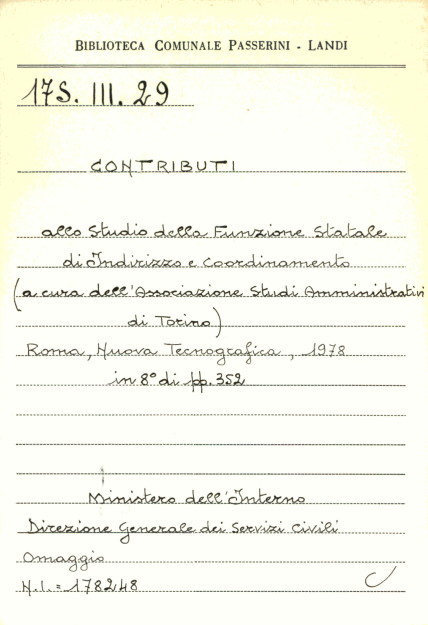 BIBLIOTECA COMUNALE PASSERINI - LANDI
17S. III. 29
CONTRIBUTI
allo Studio della Funzione Statale
di Indirizzo e Coordinamento
(a cura dell'Associazione Studi Amministrativi
di Torino)
Roma, Nuova Tecnografica, 1978
in 8° di pp. 352
Ministero dell'Interno
Direzione Generale dei Servizi Civili
Omaggio
N.I. = 178248